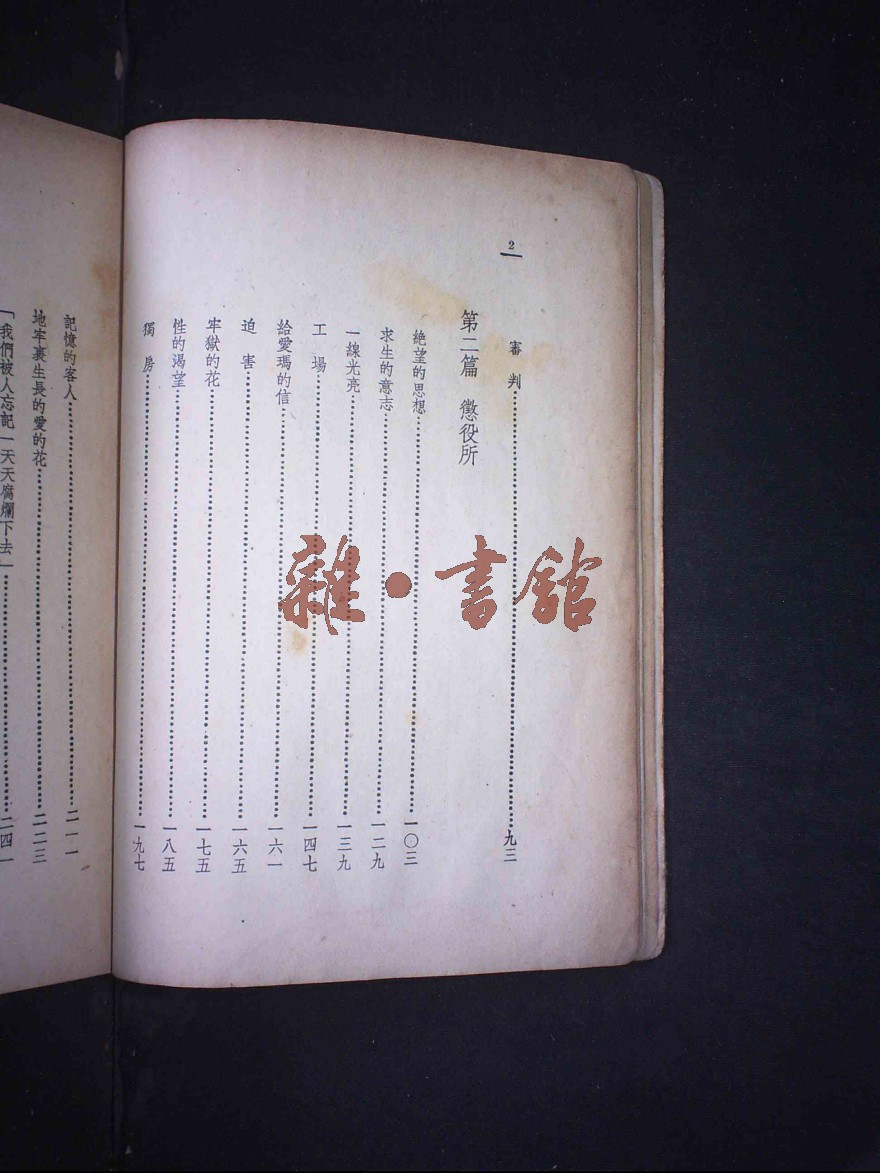 2
審判……九三
第二篇 懲役所
絶望的思想……一〇三
求生的意志……一二九
一線光亮……一三九
工場……一四七
給愛瑪的信……一六一
迫害……一六五
牢獄的花……一七五
性的渴望……一八五
獨房……一九七
記憶的客人……二一一
地牢裏生長的愛的花……二二三
「我們被人忘記一天天腐爛下去」……二四一
雜·書館